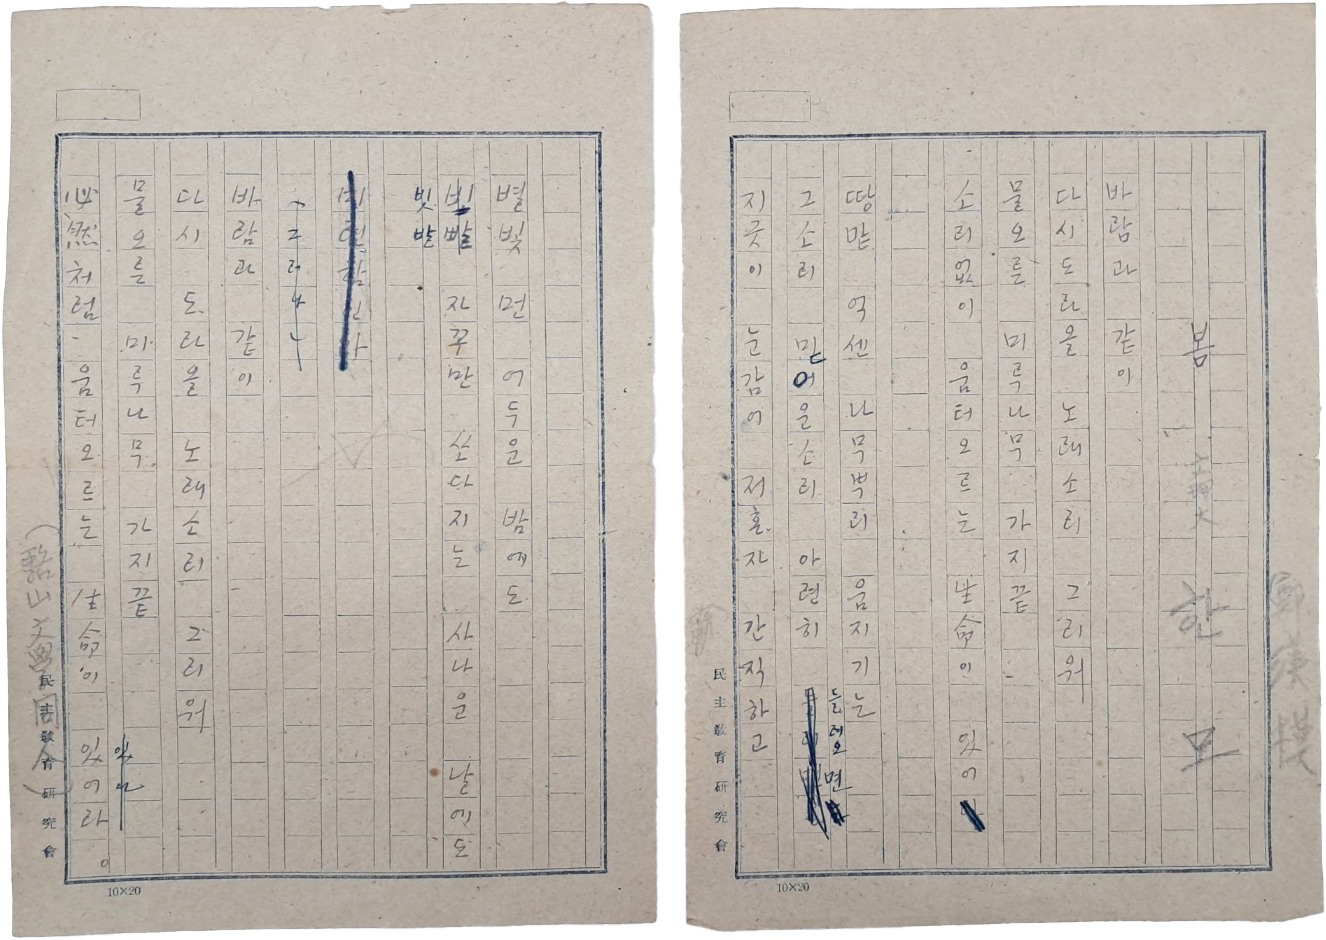 봄
한 모
바람과 같이
다시 도라올 노래소리 그리워
물오를 미루나무 가지끝
소리없이 움터오르는 生命이 있어
땅맡 억센 나무뿌리 움지기는
그소리 믿어운소리 아련히
들려오면
지긋이 눈감어 저혼자 간직하고
民主敎育硏究會
10×20
별빛 먼 어두운 밤에도
비빨 자꾸만 쏘다지는 사나운 날에도
빗발
그러나
바람과 같이
다시 도라올 노래소리 그리워
물오를 미루나무 가지끝
必然처럼 움터오르는 生命이 있어라。
民主敎育硏究會
10×20